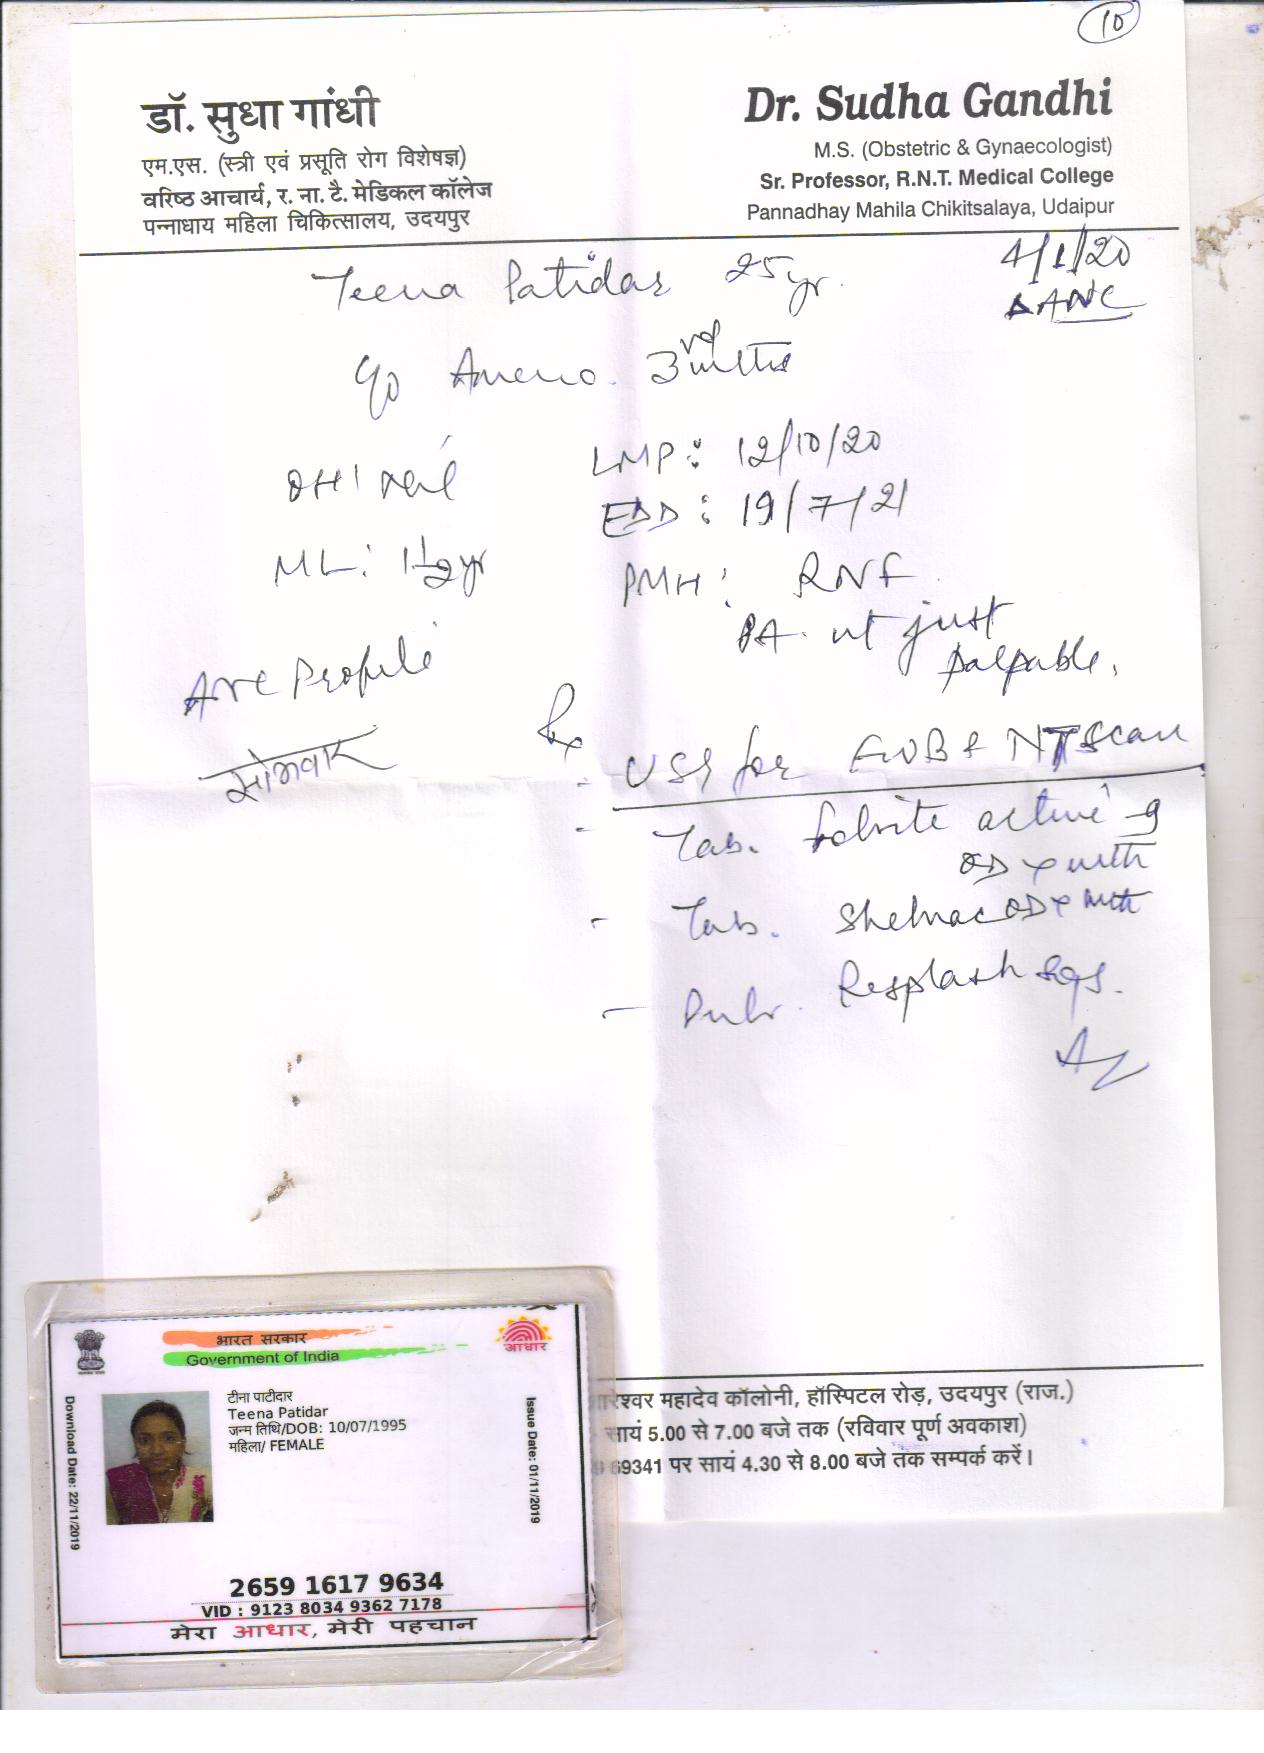 10
डॉ. सुधा गांधी
एम.एस. (स्त्री एवं प्रसूति रोग विशेषज्ञ)
वरिष्ठ आचार्य, र. ना. टै. मेडिकल कॉलेज
पन्नाधाय महिला चिकित्सालय, उदयपुर
Dr. Sudha Gandhi
M.S. (Obstetric & Gynaecologist)
Sr. Professor, R.N.T. Medical College
Pannadhay Mahila Chikitsalaya, Udaipur
4/1/20
Teena Patidar 25 yr.
ANC
c/o Ameno. 3rd mths
LMP: 12/10/20
OH:
EDD: 19/7/21
ML: 1 1/2 yr
PMH: RNF
PA. ut just
palpable.
ANC Profile
सोमवार
Rx
- USG for FWB & NT Scan
- Tab. Folvite active
OD x mth
- Tab. Shelnac OD x mth
- Resplash
भारत सरकार
Government of India
आधार
टीना पाटीदार
Teena Patidar
जन्म तिथि/DOB: 10/07/1995
महिला/ FEMALE
Download Date: 22/11/2019
Issue Date: 01/11/2019
2659 1617 9634
VID : 9123 8034 9362 7178
मेरा आधार, मेरी पहचान
महादेव कॉलोनी, हॉस्पिटल रोड़, उदयपुर (राज.)
सायं 5.00 से 7.00 बजे तक (रविवार पूर्ण अवकाश)
69341 पर सायं 4.30 से 8.00 बजे तक सम्पर्क करें।